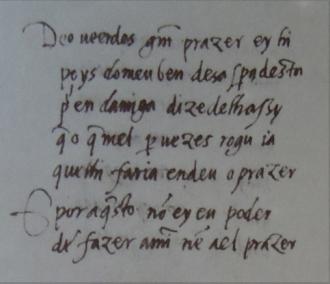 Deo ueerdes gm̃ prazer ey hi
poys domeu ben desa
p̃ en damiga dizedelhassy
q̃o q̃mel p̃ uezes rogu ia
quelhi faria endeu o prazer
E por aq̃sto nõ ey eu poder
de fazer amĩ nẽ ael prazer